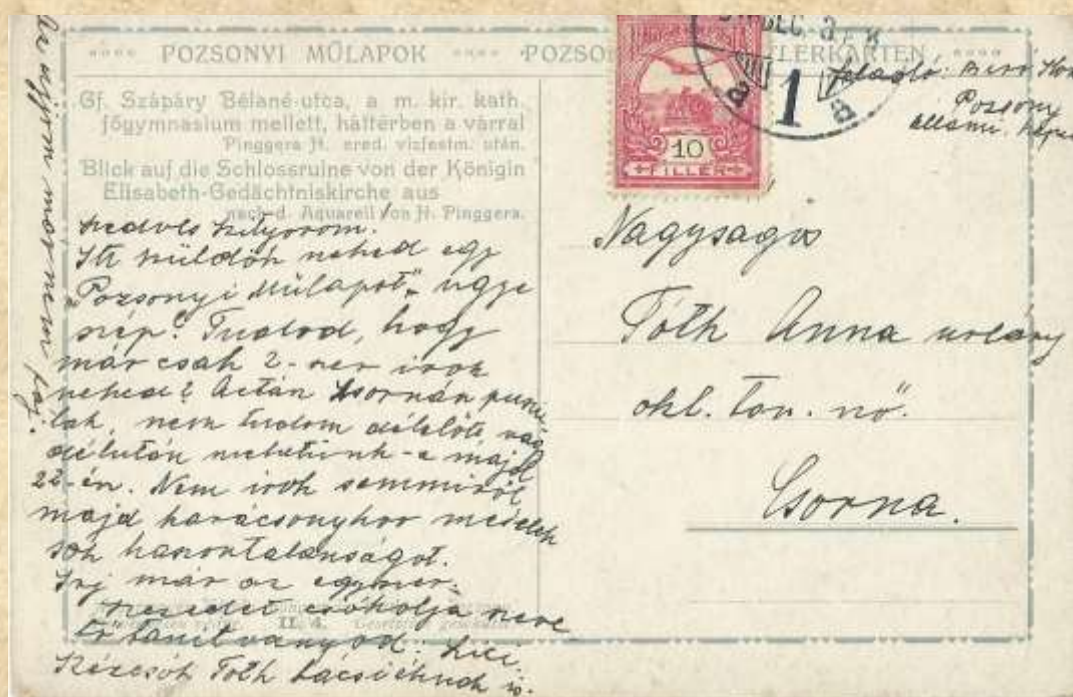 POZSONYI MŰLAPOK
Gf. Szápáry Béláné-utca, a m. kir. kath.
főgymnasium mellett, háttérben a várral
Pinggera H. ered. vizfestm. után.
Blick auf die Schlossruine von der Königin
Elisabeth-Gedächtniskirche aus
nach d. Aquarell von H. Pinggera.
Itt küldök neked egy
"Pozsonyi Műlapot" ugye
szép? Tudod, hogy
már csak 2-szer irok
neked? Aztán Csornán
nem tudom délelőtt, vagy
délután mehetünk-e majd
22-én. Nem irok semmiről
majd karácsonykor mesélek
sok haszontalanságot.
Irj már az egyszer.
Kezedet csókolja szere-
tő tanitványod: Lici.
Kézcsók Tóth bácsiéknak is.
Az ujjam már nem fáj.
II. 4.
10
FILLER
DEC.
1
Feladó:
Pozsony
állami
Nagyságos
Tóth Anna urleány
okl. tan. nő.
Csorna.